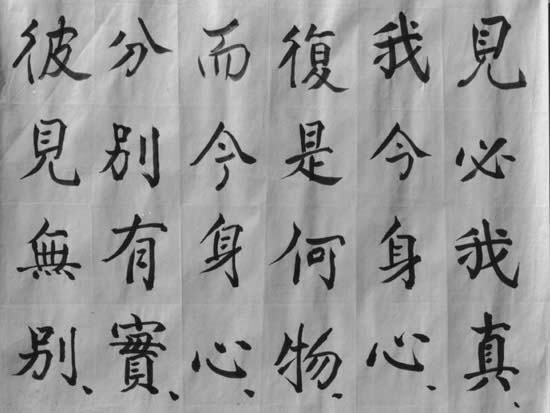 見必我真、
我今身心、
復是何物、
而今身心、
分別有實、
彼見無別、